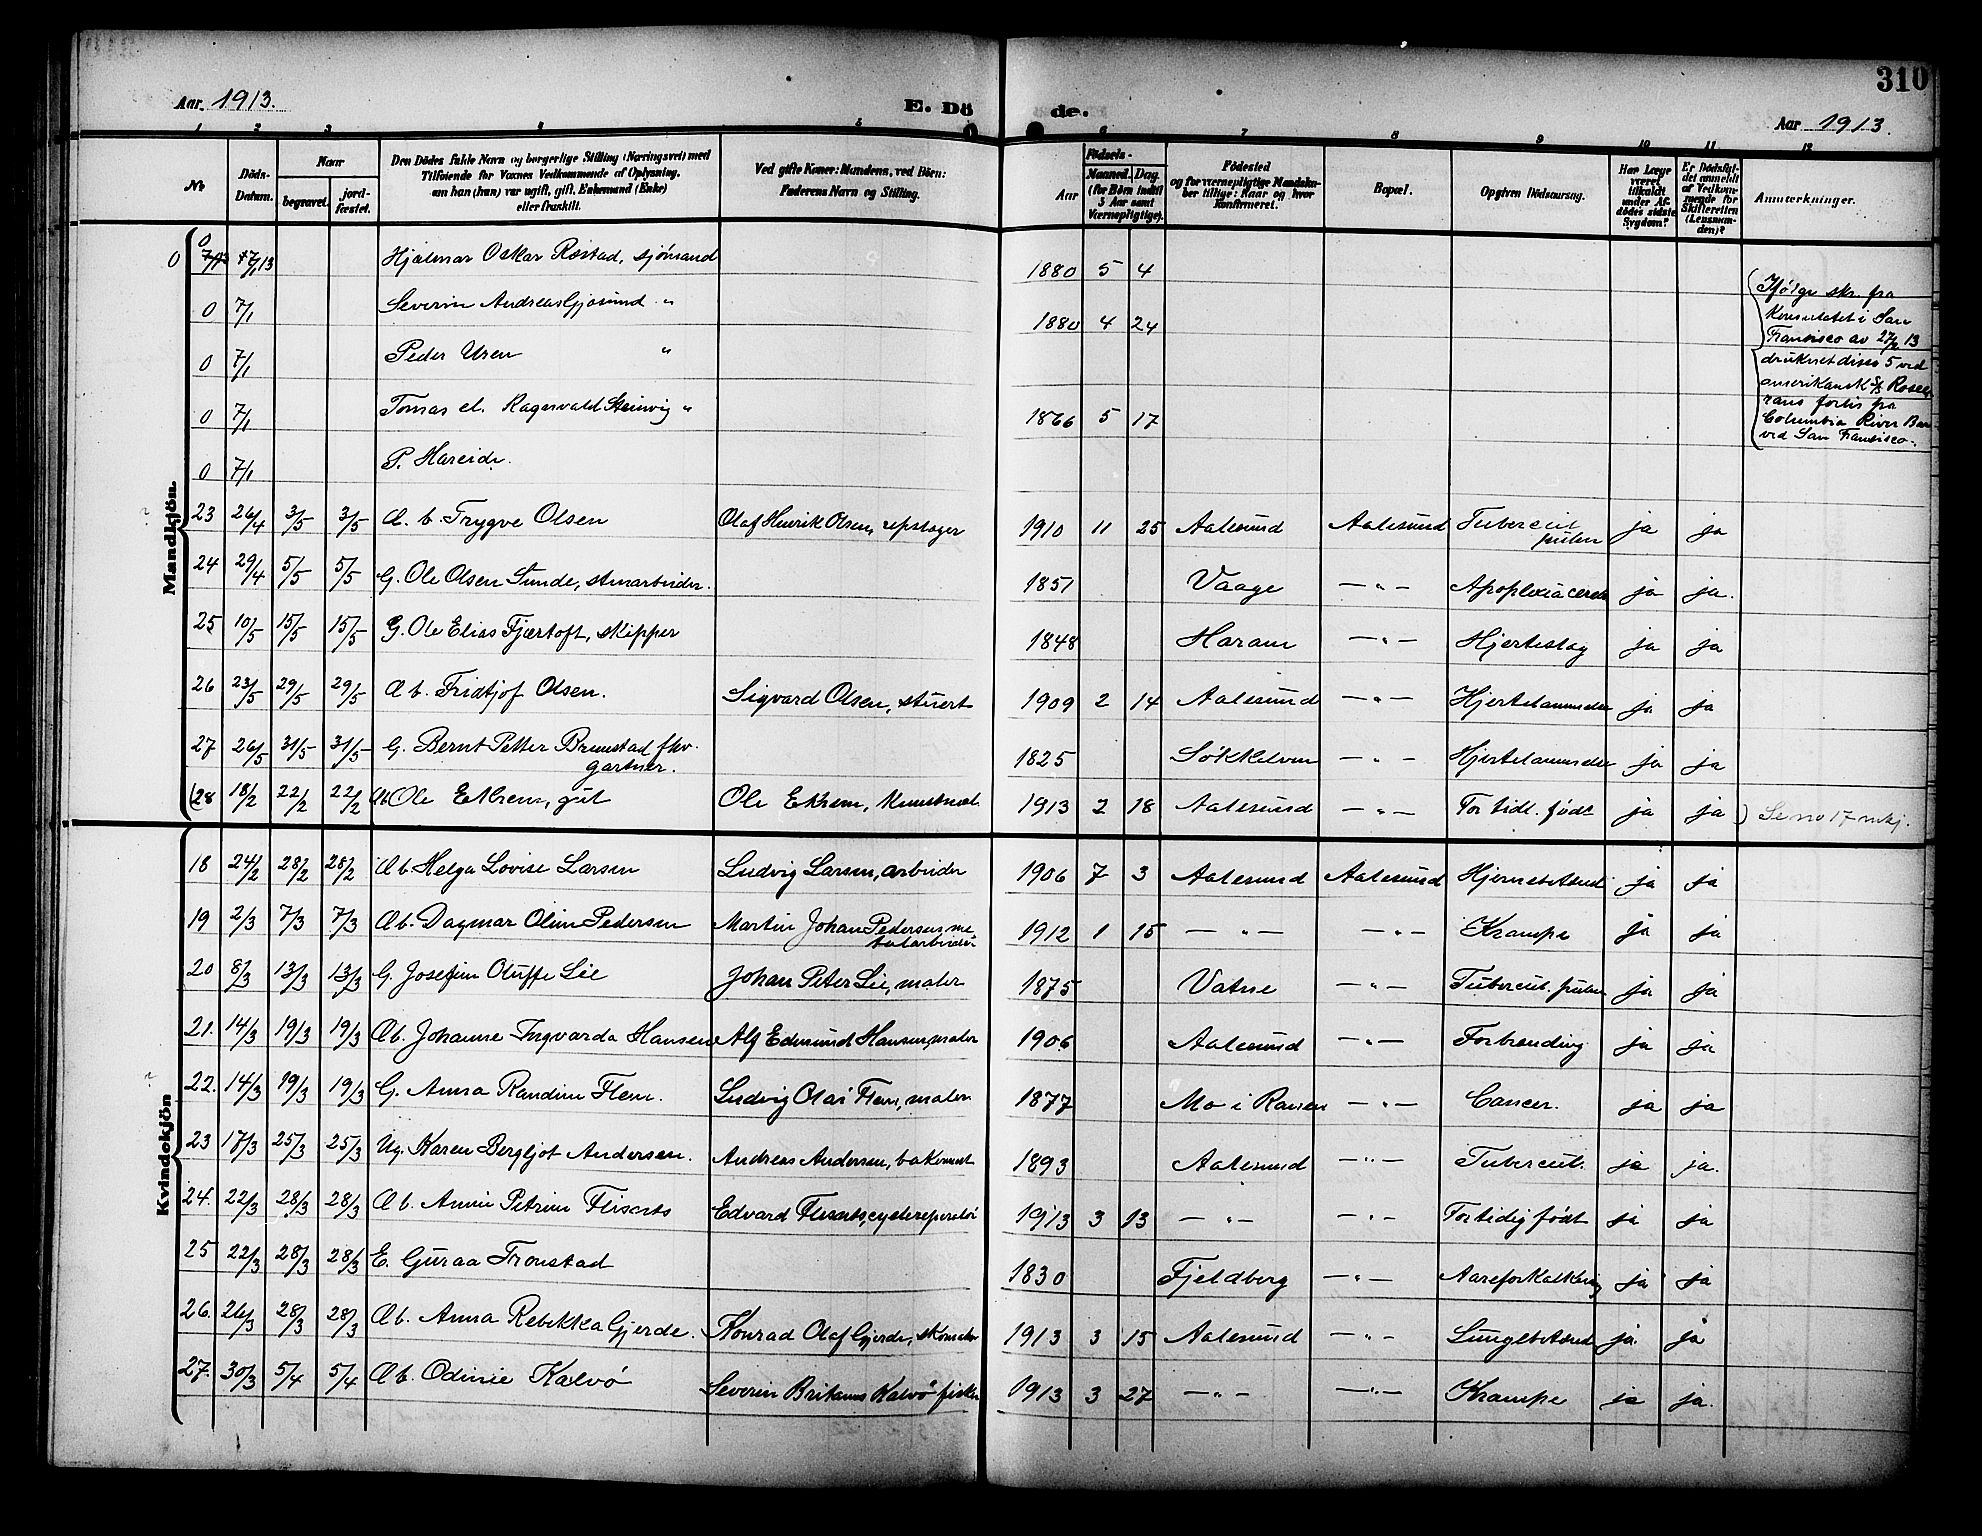 310
Aar 1913.
E. Dö
de.
Aar 1913.
1 2 3 4 5 6 7 8 9 10 11 12
No
Döds-
Datum.
Naar
begravet.
jord-
fæstet.
Den Dödes fulde Navn og borgerlige Stilling (Næringsvei) med
Tilföiende for Voxnes Vedkommende af Oplysning,
om han (hun) var ugift, gift, Enkemand (Enke)
eller fraskilt.
Ved gifte Koner: Mandens, ved Börn:
Faderens Navn og Stilling.
Födsels-
Aar
Maaned. Dag.
(for Börn indtil
5 Aar samt
Værnepligtige).
Födested
og for værnepligtige Mandskaber tillige: Naar og hvor
konfirmeret.
Bopæl.
Opgiven Dödsaarsag.
Har Læge
været
tilkaldt
under Afdödes sidste
Sygdom?
Er Dödsfaldet anmeldt
af Vedkommende for
Skifteretten
(Lensmanden)?
Anmærkninger.
Mandkjön.
0 7/1 13 Hjalmar Oskar Røstad, sjømand 1880 5 4
0 7/1 Severin Andreas Gjøsund " 1880 4 24
0 7/1 Peder Uren "
0 7/1 Tomas el. Ragnvald Steinvig " 1866 5 17
0 7/1 P. Hareide.
Ifølge skr. fra
Konsulatet i San
Fransisco av 27/2 13
druknet disse 5 ved
amerikansk S/S Rosec
rans forlis fra
Columbia River Bar
ved San Fransisco.
23 26/4 3/5 3/5 Æ. b. Trygve Olsen Olaf Henrik Olsen, opslager 1910 11 25 Aalesund Aalesund Tubercul pulm ja ja
24 29/4 5/5 5/5 G. Ole Olsen Sunde, stenarbeider. 1851 Vaage — " — Apoplexia cereb ja ja.
25 10/5 15/5 15/5 G. Ole Elias Fjærtoft, skipper 1848 Haram — " — Hjerteslag ja ja
26 23/5 29/5 29/5 Æ b. Fridtjof Olsen. Sigvard Olsen, stuert 1909 2 14 Aalesund — " — Hjertelammelse ja ja
27 26/5 31/5 31/5 G. Bernt Petter Brunstad fhv. gartner. 1825 Søkkelven — " — Hjertelammelse ja ja
(28 18/2 22/2 22/2 Æb Ole Ekrem, gut Ole Ekrem, 1913 2 18 Aalesund — " — For tidl. født ja ja ) Se no 17 mkj.
Kvindekjön
18 24/2 28/2 28/2 Æb. Helga Lovise Larsen Ludvig Larsen, arbeider 1906 7 3 Aalesund Aalesund Hjernebetænd ja ja
19 2/3 7/3 7/3 Æb. Dagmar Oline Pedersen Martin Johan Pedersen, metalarbeider 1912 1 15 — " — — " — Krampe ja ja
20 8/3 13/3 13/3 G. Josefine Oluffe Lie Johan Peter Lie, maler 1875 Vatne — " — Tubercul. pulm ja ja
21. 14/3 19/3 19/3 Æb. Johanne Ingvarda Hansen Alf Edmund Hansen, maler 1906 Aalesund — " — Forbrending ja ja
22. 14/3 19/3 19/3 G. Anna Randine Flem. Ludvig Olai Flem, maler 1877 Mo i Ranen — " — Cancer. ja ja
23 17/3 25/3 25/3 Ug. Karen Bergljot Andersen. Andreas Andersen, bakermest 1893 Aalesund — " — Tubercul. ja ja.
24. 22/3 28/3 28/3 Æ b. Annie Petrine Flisnes Edvard Flisnes, cyclereparatør 1913 3 13 — " — — " — For tidig født ja ja
25 22/3 28/3 28/3 E. Guraa Tronstad 1830 Fjeldberg — " — Aareforkalkning ja ja
26. 26/3 28/3 28/3 Æb. Anna Rebekka Gjerde. Konrad Olaf Gjerde, skomaker 1913 3 15 Aalesund — " — Lungebetænd ja. ja
27. 30/3 5/4 5/4 Æb. Odinie Kalvø Severin Britanus Kalvø fisker 1913 3 27 — " — — " — Krampe ja ja.